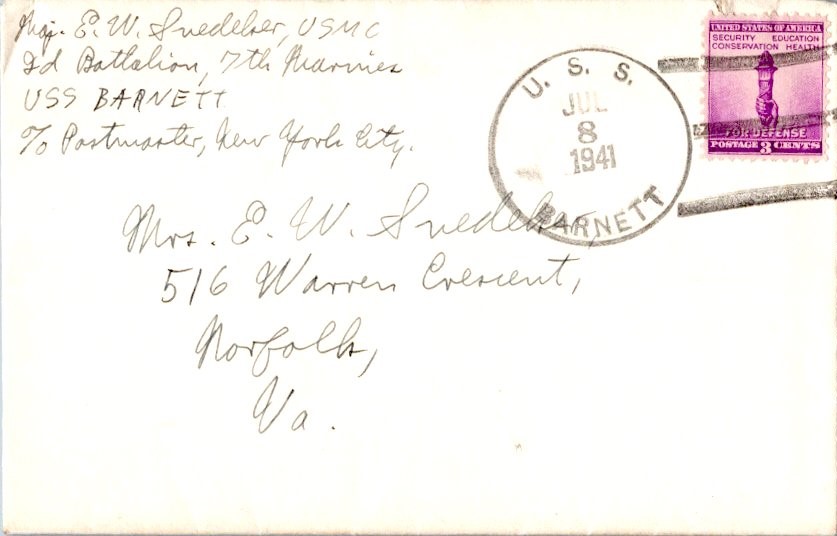 Maj. E. W. Snedeker, USMC
2d Battalion, 7th Marines
USS BARNETT
c/o Postmaster, New York City.
U. S. S.
JUL
8
1941
BARNETT
UNITED STATES OF AMERICA
SECURITY EDUCATION
CONSERVATION HEALTH
FOR DEFENSE
POSTAGE 3 CENTS
Mrs. E. W. Snedeker,
516 Warren Crescent,
Norfolk,
Va.